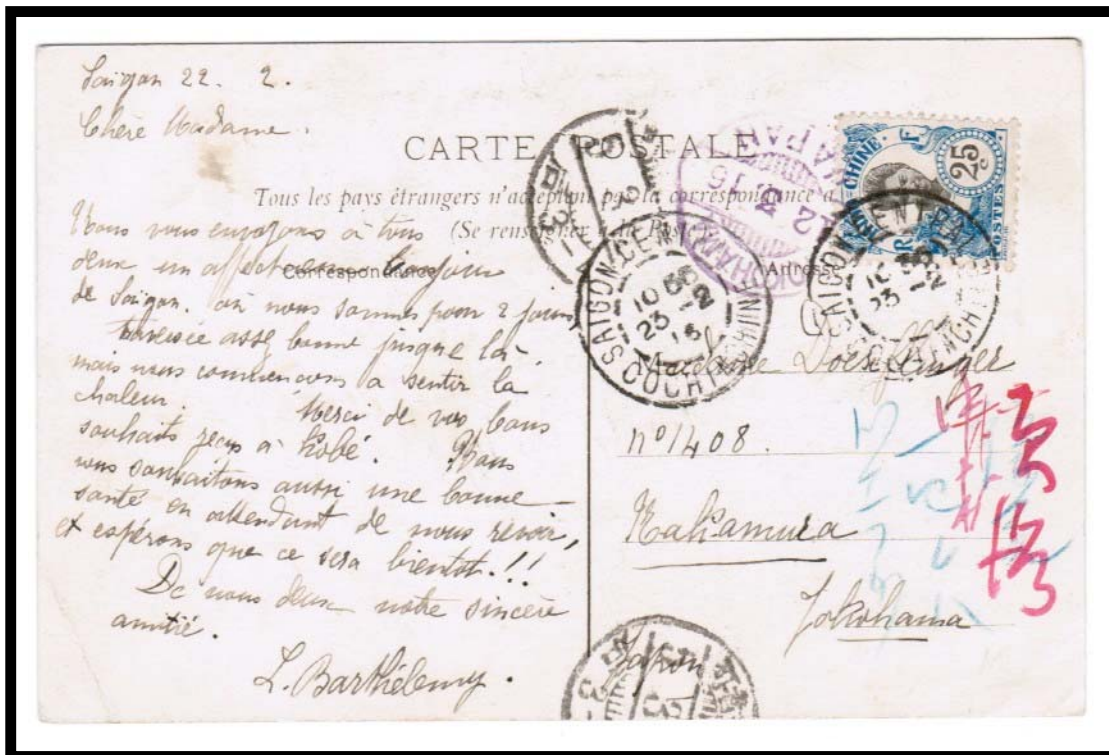 Saigon 22. 2.
Chère Madame.
CARTE POSTALE
Tous les pays étrangers n'acceptent pas la correspondance a
(Se renseigner à la Poste)
Correspondance
Adresse
Nous vous envoyons à tous
deux un affectueux bonjour
de Saïgon. où nous sommes pour 2 jours
Traversée asse bonne jusque là.
mais nous commencons a sentir la
chaleur. Merci de vos bons
souhaits reçus à Kobé. Nous
vous souhaitons aussi une bonne
santé en attendant de nous revoir,
et espérons que ce sera bientot.!!
De nous deux notre sincère
amitié.
L. Barthélemy.
CHINE.
RF
25
c
POSTES
SAIGON-CENTRAL
10
23 -2
16
COCHINCHINE
SAIGON-CENTRAL
10
23 -2
COCHINCHINE
YOKOHAMA
JAPAN
12 3 16
Madame
n° 1408.
Nakamura
Yokohama
Japon